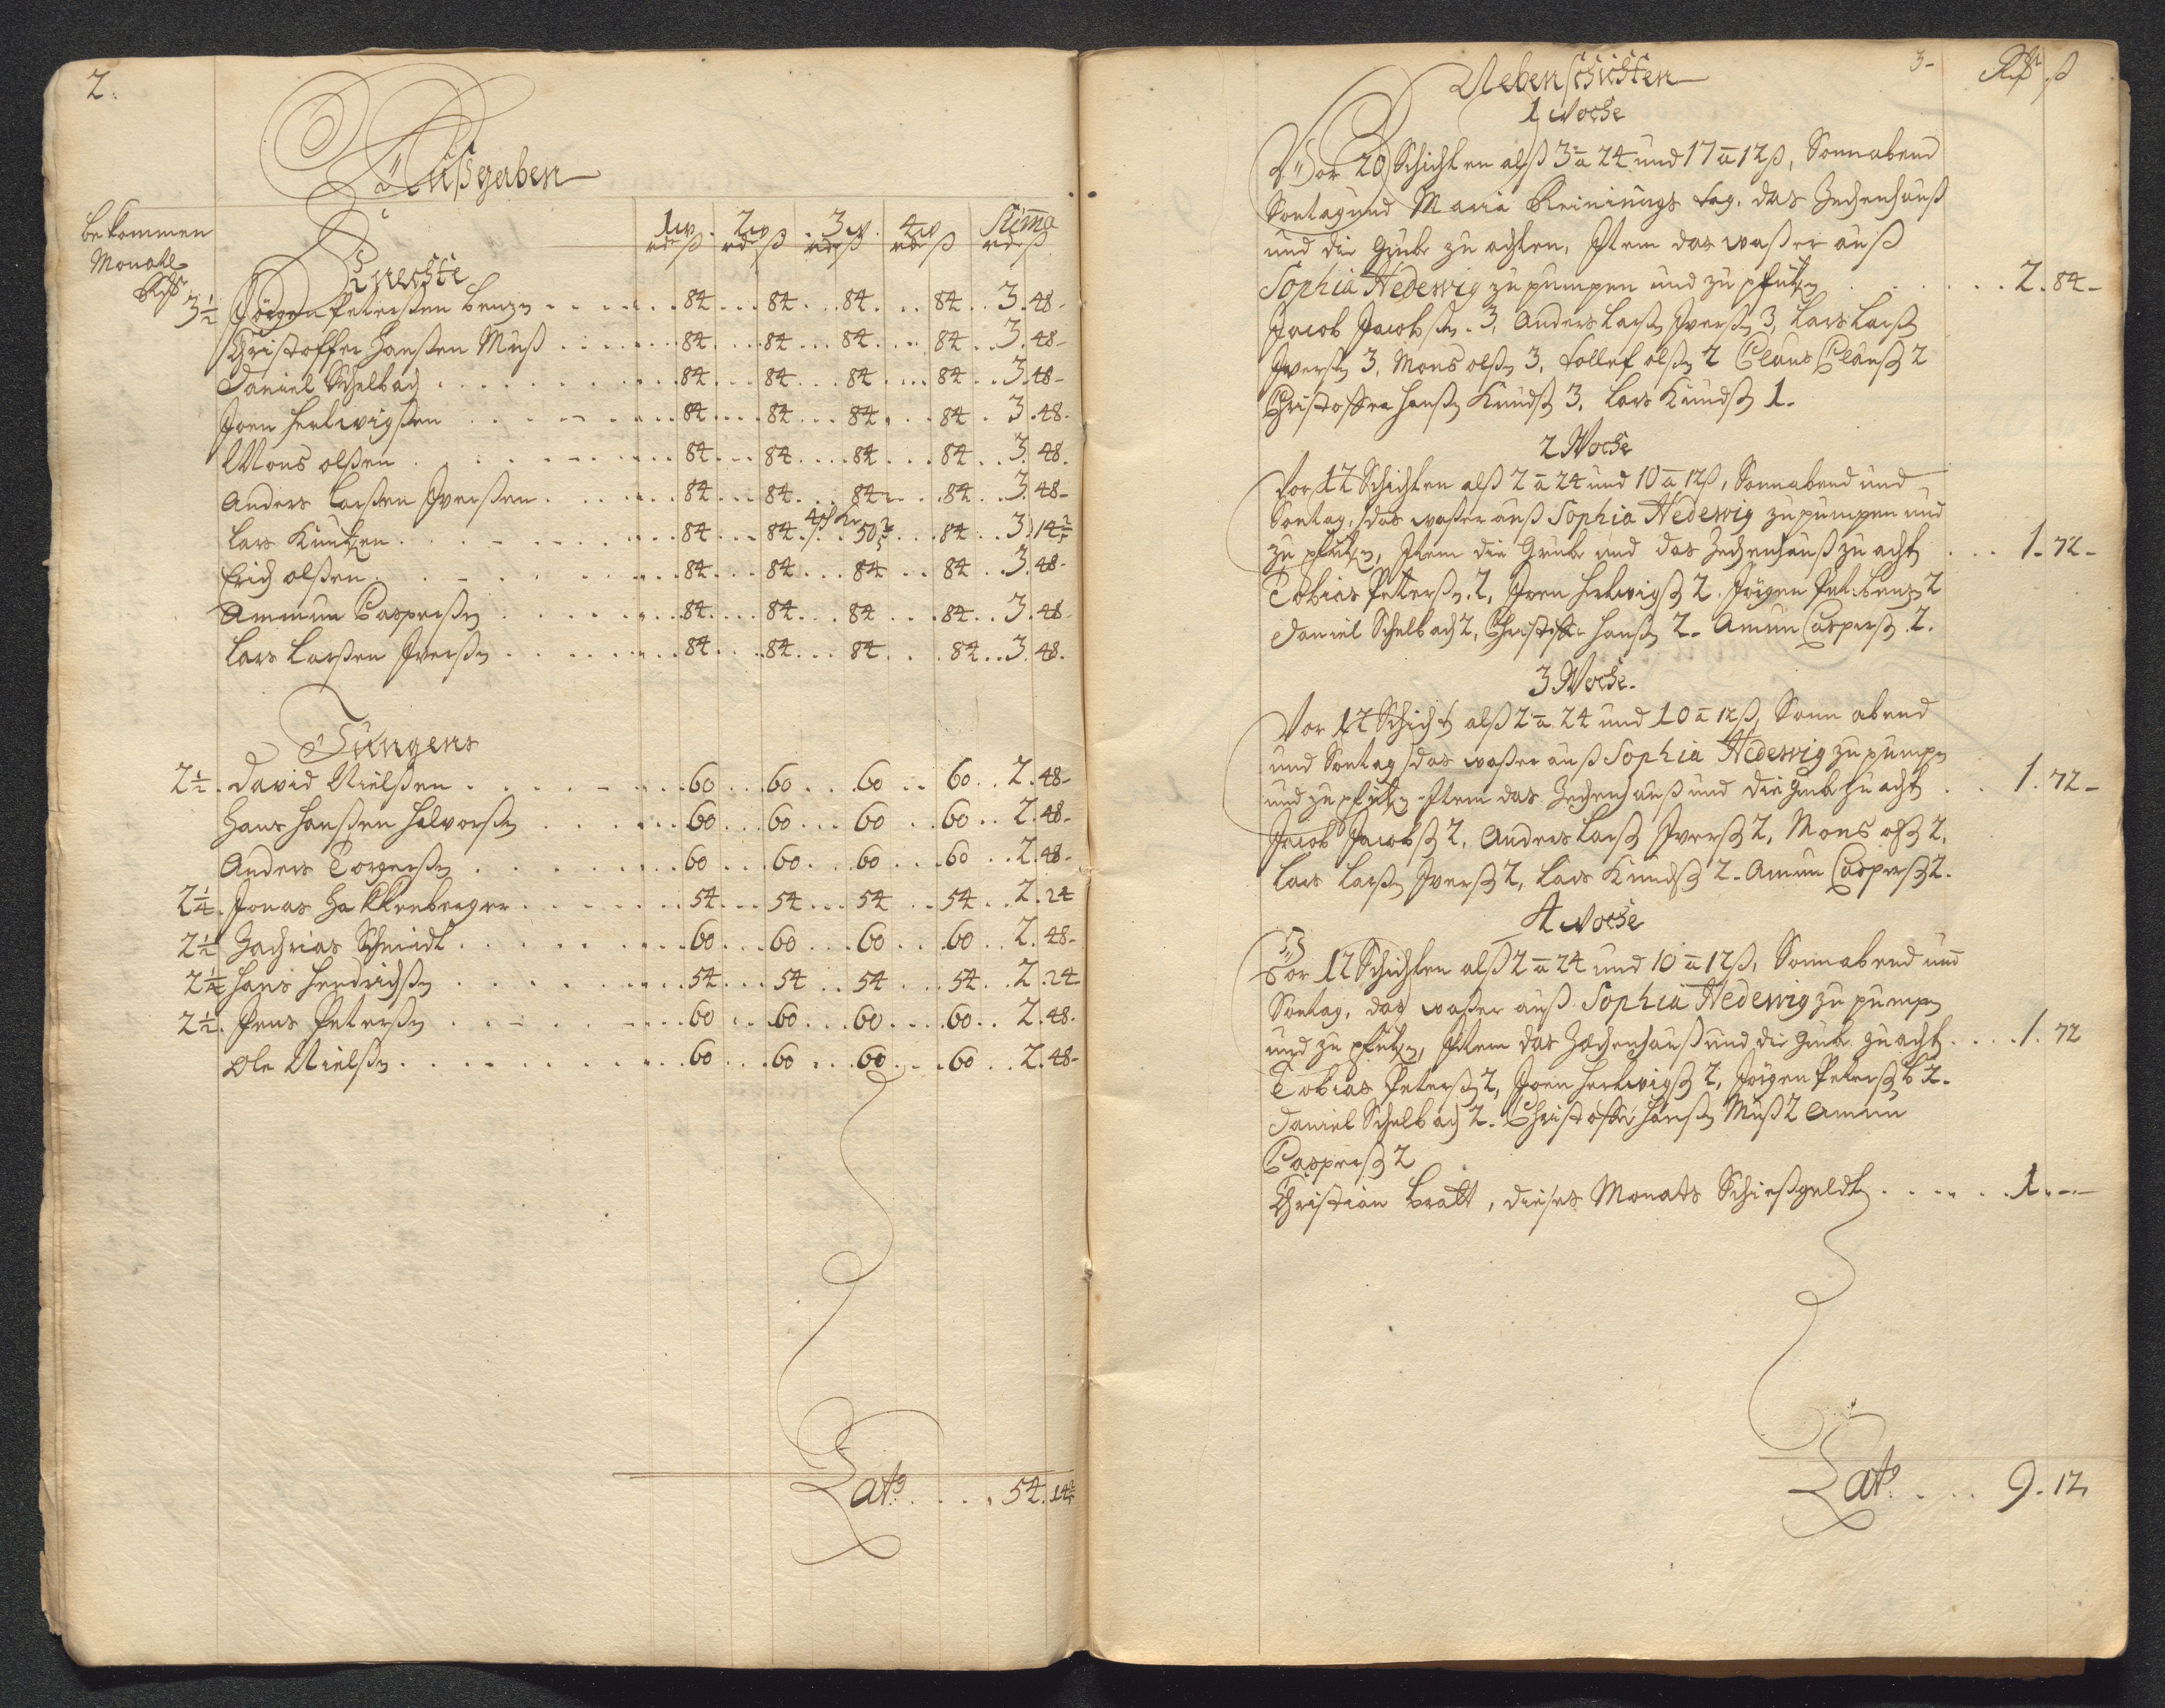 2.
Außgaben
bekommen
Monatl.
Rdr
1w. 2w. 3w. 4w Suma
rd ß rd ß rd ß rd ß rd ß
Knechte
3½ Jörgen Peterßen Benz . . . 84 . . 84 . . 84 . . 84 . . 3. 48-
Christoffer Hanßen Muß . . . 84 . . 84 . . 84 . . 84 . . 3. 48-
Daniel Schelbach . . . 84 . . 84 . . 84 . . 84 . . 3. 48-
Joen Herlwigßen . . . 84 . . 84 . . 84 . . 84 . 3. 48.
Mons olßen . . . 84 . . 84 . . 84 . . 84 . . 3. 48.
Anders Larßen Iverßen . . . 84 . . 84 . . 84 . . 84 . . 3. 48-
Lars Knutzen . . . 84 . . 84 . . 50 2/5 . . 84 . . 3. 14 2/5
Erich olßen . . . 84 . . 84 . . 84 . . 84 . . 3. 48-
Ammun Casperßn . . . 84 . . 84 . . 84 . . 84 . . 3. 48-
Lars Larßen Iverßn . . . 84 . . 84 . . 84 . . 84 . . 3. 48.
Jungens
2½. David Nielßen . . . 60 . . 60 . . 60 . . 60 . . 2. 48-
Hans Hanßen Halvorßn . . . 60 . . 60 . . 60 . . 60 . . 2. 48-
Anders Torgerßn . . . 60 . . 60 . . 60 . . 60 . . 2. 48-
2¼. Jonas Hakkenberger . . . 54 . . 54 . . 54 . . 54 . . 2. 24
2½ Zachrias Schmidt . . . 60 . . 60 . . 60 . . 60 . . 2. 48-
2¼ Hans Hendrichßn . . . 54 . . 54 . . 54 . . 54 . . 2. 24
2½. Jens Peterßn . . . 60 . . 60 . . 60 . . 60 . . 2. 48.
Ole Nielßn . . . 60 . . 60 . . 60 . . 60 . . 2. 48-
Lats . . . . 54. 14 2/5
3-
Rdr ß
Nebenschichten
1 Woche
Vor 20 Schichten alß 3 a 24 und 17 a 12ß, Sonnabend
Sontag und Maria Reinigungs tag, das Zechenhauß
und die Grube zu achten, Item das waßer auß
Sophia Hedewig zu pumpen und zu pfützn . . . 2. 84-
Jacob Jacobßn. 3, Anders Larßn Iverßn 3, Lars Larßn
Iverßn 3, Mons olßn 3, Tollef olßn 2 Claus Claußn 2
Christoffer Hanßn Knudß 3, Lars Knudß 1.
2 Woche
Vor 12 Schichten alß 2 a 24 und 10 a 12ß, Sonnabend und
Sontag, das waßer auß Sophia Hedewig zu pumpen und
zu pfützn, Item die Grube und das Zechenhauß zu acht . . . 1. 72-
Tobias Peterßn. 2, Joen Herlwigß 2. Jörgen Pet: Benzn 2
Daniel Schelbach 2, Christoffer Hanßn 2. Amun Casperß 2.
3 Woche.
Vor 12 Schicht alß 2 a 24 und 10 a 12ß, Sonn abend
und Sontag das waßer auß Sophia Hedewig zu pumpn
und zu pfützn Item das Zechenhauß und die Grube zu acht . . 1. 72-
Jacob Jacobß 2, Anders Larß Iverß 2, Mons olß 2.
Lars Larßn Iverß 2, Lars Knudß 2. Amun Casperß 2.
4 Woche
Vor 12 Schichten alß 2 a 24 und 10 a 12ß, Sonnabend und
Sontag, das waßer auß Sophia Hedewig zu pumpn
und zu pfützn, Item das Zechenhauß und die Grube zu acht . . . 1. 72
Tobias Peterß 2, Joen Herlwigß 2, Jörgen Peterß B 2.
Daniel Schelbach 2. Christoffer Hanßn Muß 2 Amun
Casperß 2
Christian Bratt, dieses Monats Schießgeldt . . . . 1. --
Lats . . . 9. 12